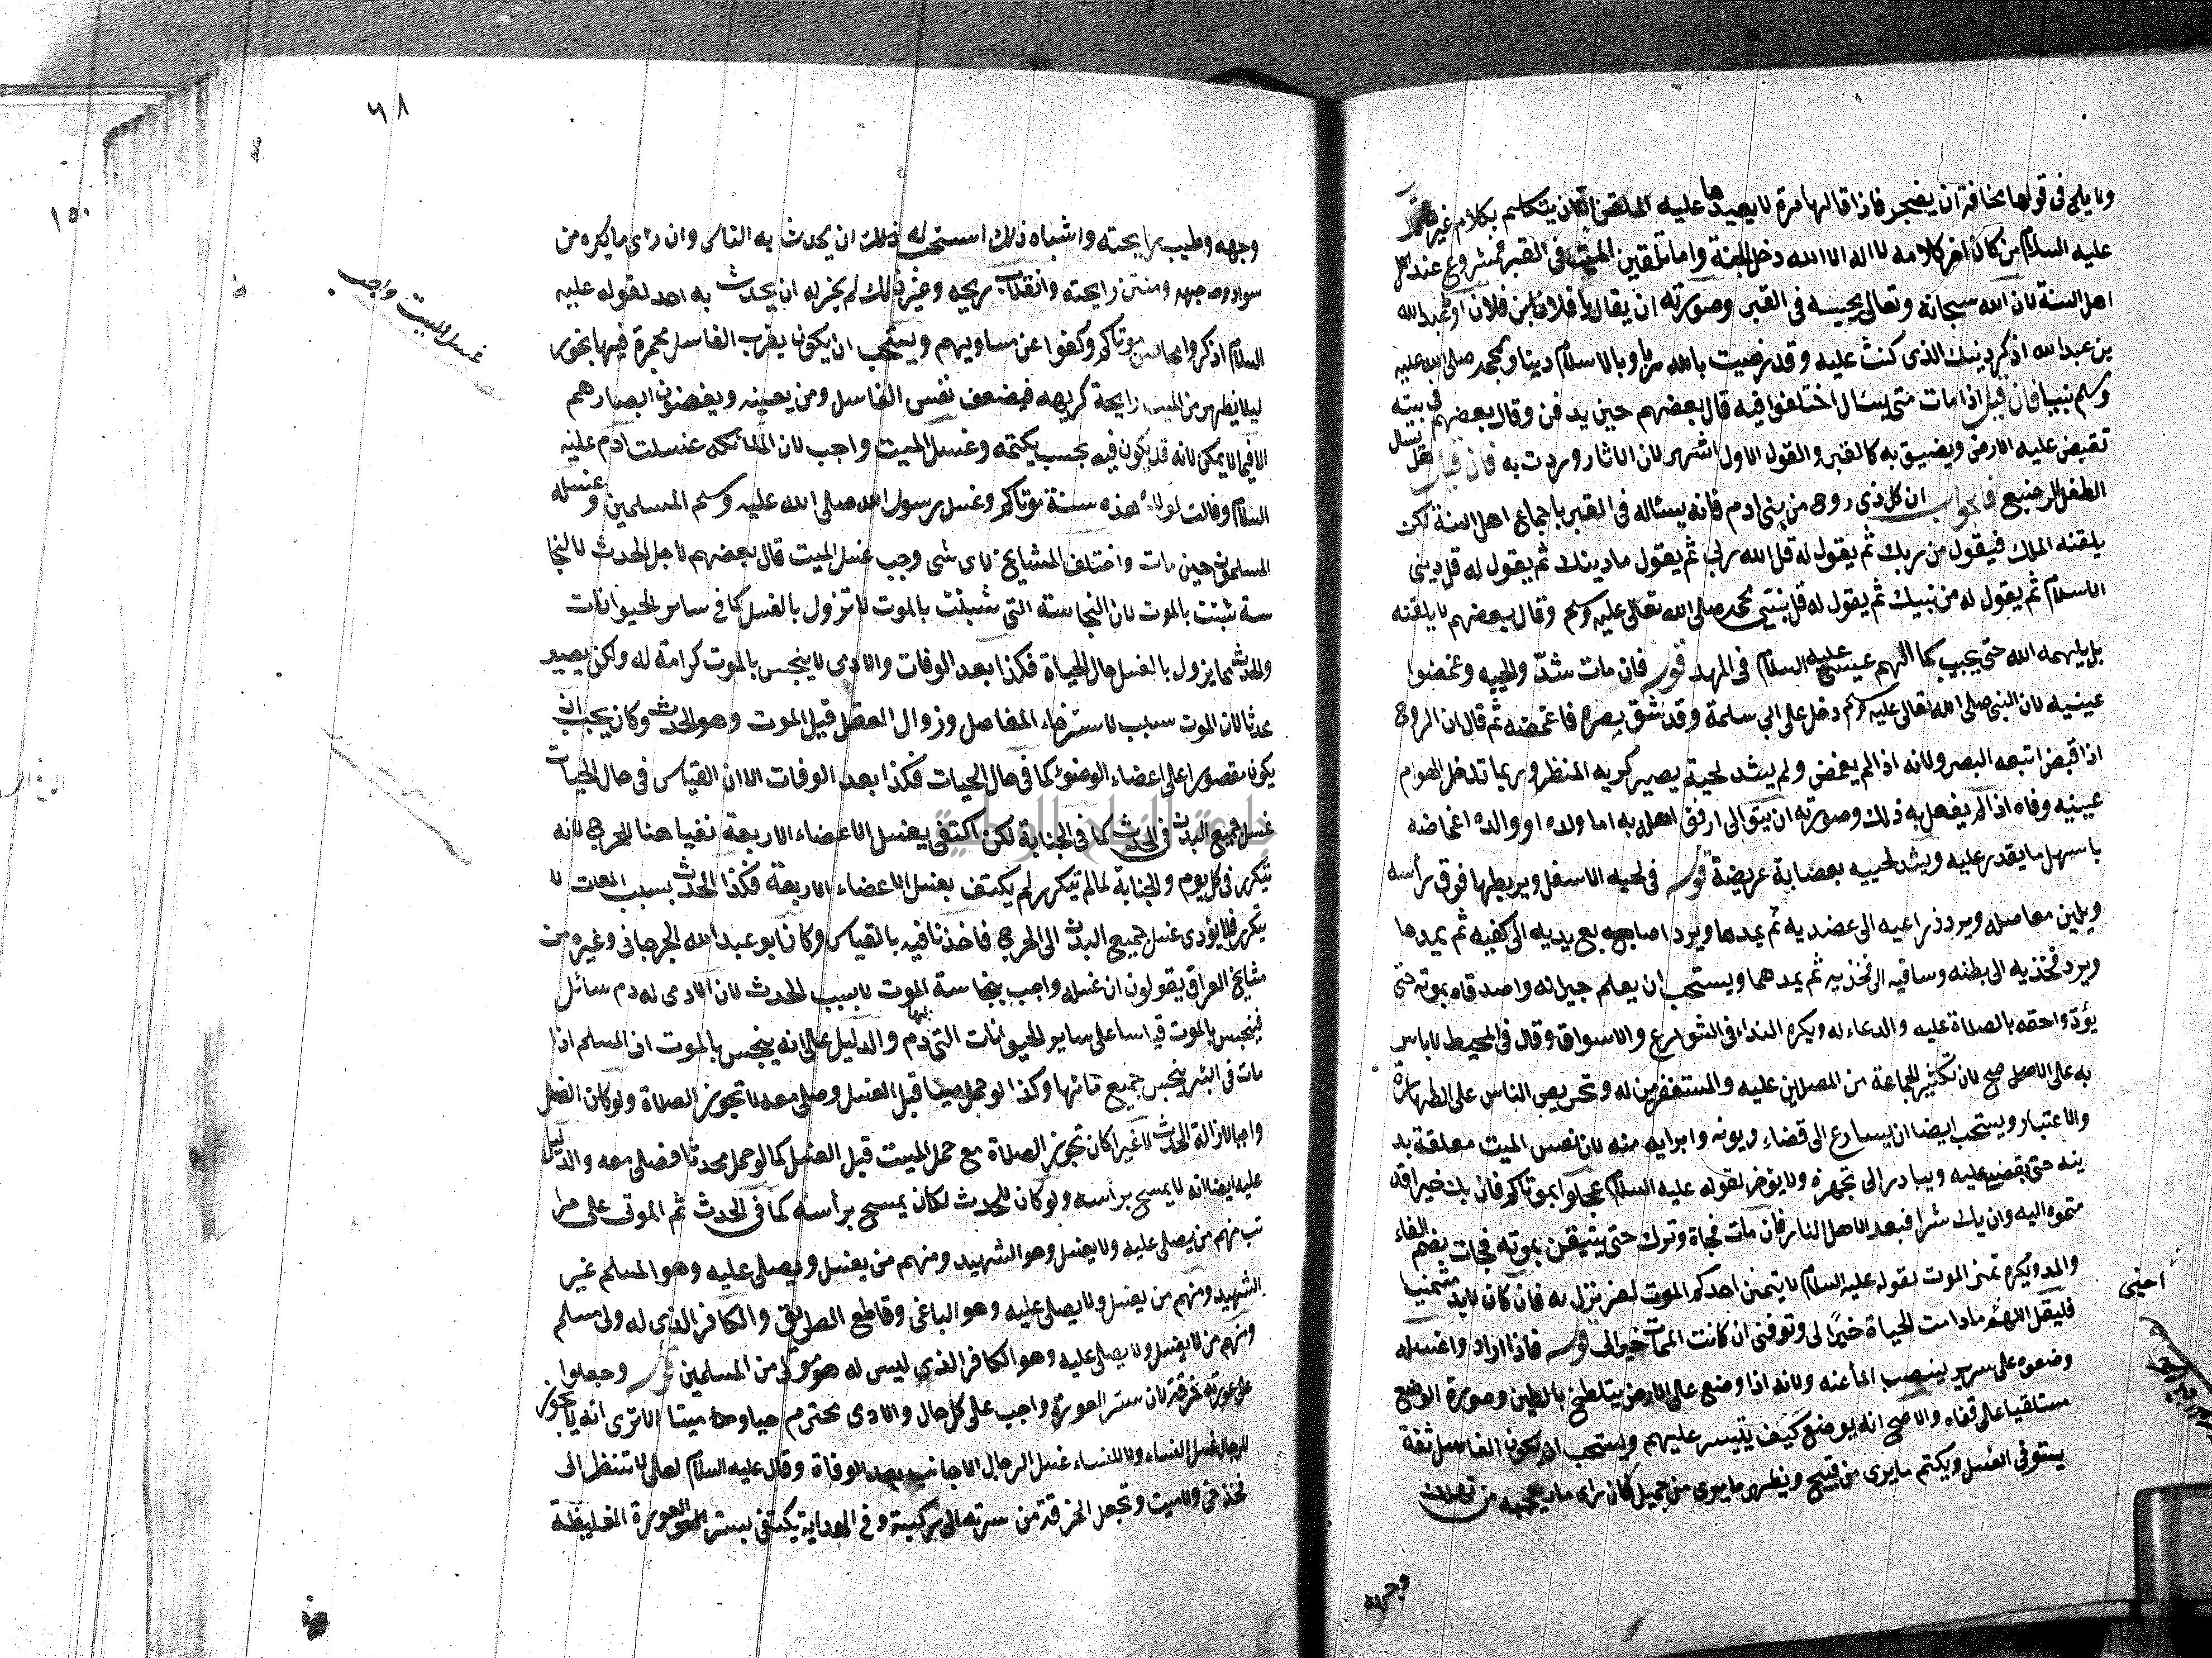 ولا يلح في قولها مخافة ان يضجر فاذا قالها مرة لا يعيدها عليه الملقن الا ان يتكلم بكلام غير
عليه السلام من كان اخر كلامه لا اله الا الله دخل الجنة واما تلقين الميت في القبر فمشروع عند
اهل السنة لان الله سبحانه وتعالى يحييه في القبر وصورته ان يقال يا فلان بن فلان او يا عبد الله
بن عبد الله اذكر دينك الذي كنت عليه وقد رضيت بالله ربا وبالاسلام دينا وبمحمد صلى الله عليه
وسلم نبيا فان قيل اذا مات متى يسئال اختلفوا فيه قال بعضهم حين يدفن وقال بعضهم في بيته
تقبض عليه الارض ويضيق به كالقبر والقول الاول اشهر لان الاثار وردت به فان قيل
الطفل الرضيع فالجواب ان كل ذي روح من بني ادم فانه يسئاله في القبر باجماع اهل السنة لكن
يلقنه الملك فيقول من ربك ثم يقول له قل الله ربي ثم يقول ما دينك ثم يقول له قل ديني
الاسلام ثم يقول له من نبيك ثم يقول له قل نبيي محمد صلى الله تعالى عليه وسلم وقال بعضهم لا يلقنه
بل يلهمه الله حتى يجيب كما الهم عيسى عليه السلام في المهد قوله فان مات شدّ والحييه وغمضوا
عينيه لان النبي صلى الله تعالى عليه وسلم دخل على ابي سلمة وقد شق بصره فاغمضه ثم قال ان الروح
اذا قبض اتبعه البصر ولانه اذا لم يغمض ولم يشد لحية يصير كريه المنظر وربما تدخل الهوام
عينيه وفاه اذا لم يفعل به ذلك وصورته ان يتوالى ارفق اهله به اما ولده او والده اغماضه
باسهل ما يقدر عليه ويشد لحييه بعصابة عريضة قوله في لحيه الاسفل ويربطها فوق رأسه
ويلين مفاصله ويرد ذراعيه الى عضديه ثم يمدها ويرد اصابع يديه الى كفيه ثم يمدها
ويرد فخذيه الى بطنه وساقيه الى فخذيه ثم يمدهما ويستحب ان يعلم جيرانه واصدقاه بموته حتى
يؤدوا حقه بالصلاة عليه والدعاء له ويكره النداء في الشوارع والاسواق وقال في المحيط لا باس
به على الاصح لان تكثير الجماعة من المصلين عليه والمستغفرين له وتحريض الناس على الطهارة
والاعتبار ويستحب ايضا ان يسارع الى قضاء ديونه وابرايه منه لان نفس الميت معلقة بد
ينه حتى يقضى عليه ويبادر الى تجهزه ولا يؤخر لقوله عليه السلام عجلوا بموتاكم فان يك خيرا قد
متموه اليه وان يك شرا فبعدا لاهل النار فان مات فجاة وترك حتى يتيقن بموته فجات بضم الفاء
والمد ويكره تمنى الموت لقوله عليه السلام لا يتمنين احدكم الموت لضر نزل به فان كان لابد متمنيا
فليقل اللهم ما دامت الحياة خيرًا لي وتوفني ان كانت الممات خير الى قوله فاذا ارادوا غسله
وضعوه على سرير لينصب الماء عنه ولانه اذا وضع على الارض يتلطخ بالطين وصورة الوضع
مستلقيا على قفاه والاصح انه يوضع كيف يتيسر عليهم ويستحب ان يكون الغاسل ثقة
يستوفي الغسل ويكتم ما يرى من قبيح ويظهر ما يرى من جميل كان راى ما يعجبه من تهلل
احيني
وجهه
٦٨
١٥٠
وجهه وطيب رايحته واشباه ذلك استحب له ذلك ان يحدث به الناس وان راى ما يكره من
سواد وجهه ونتن رايحته وانقلاب ريحه وغير ذلك لم يجز له ان يحدث به احد لقوله عليه
السلام اذكروا محاسن موتاكم وكفوا عن مساويهم ويستحب ان يكون بقرب الغاسل مجمرة فيها بخور
ليلا يظهر من الميت رايحة كريهه فيضعف نفس الغاسل ومن يعينه ويغضون ابصارهم
الا فيما لا يمكن لانه قد يكون فيه بحسب يكتمه وغسل الميت واجب لان الملائكه غسلت ادم عليه
السلام وقالت لولده هذه سنة موتاكم وغسل رسول الله صلى الله عليه وسلم المسلمين وغسله
المسلمون حين مات واختلف المشايخ لاى شى وجب غسل الميت قال بعضهم لاجل الحدث لا لنجا
سة ثبتت بالموت لان النجاسة التي ثبتت بالموت لا تزول بالغسل كما في سائر الحيوانات
والحدث مما يزول بالغسل حال الحياة فكذا بعد الوفات والادمي لا ينجس بالموت كرامة له ولكن يصير
محدثا لان الموت سبب لاسترخاء المفاصل وزوال العقل قبل الموت وهو الحدث وكان يجب ان
يكون مقصورا على اعضاء الوضوء كما في حال الحيات فكذا بعد الوفات الا ان القياس في حال الحيات
غسل جميع البدن في الحدث كما في الجنابة لكن اكتفى بغسل الاعضاء الاربعة نفيا هنا للحرج لانه
يتكرر في كل يوم والجنابة لما لم تتكرر لم يكتف بغسل الاعضاء الاربعة فكذا الحدث بسبب الممات لا
يتكرر فلا يؤدى غسل جميع البدن الى الحرج فاخذنا فيه بالقياس وكان ابو عبد الله الجرجاني وغيره من
مشايخ العراق يقولون ان غسله واجب بنجاسة الموت لا بسبب الحدث لان الادمى له دم سائل
فينجس بالموت قياسا على ساير الحيوانات التي لها دم والدليل على انه ينجس بالموت ان المسلم اذا
مات في البئر ينجس جميع مائها وكذا لو حمل ميتا قبل الغسل وصلى معه لا تجوز الصلاة ولو كان الغسل
واجبا لازالة الحدث لا غير لكان تجوز الصلاة مع حمل الميت قبل الغسل كما لو حمل محدثا فصلى معه والدليل
عليه ايضا انه لا يمسح براسه ولو كان للحدث لكان يمسح برأسه كما في الحدث ثم الموتى على مرا
تب منهم من يصلى عليه ولا يغسل وهو الشهيد ومنهم من يغسل ويصلى عليه وهو المسلم غير
الشهيد ومنهم من يغسل ولا يصلى عليه وهو الباغي وقاطع الطريق والكافر الذي له ولى مسلم
ومنهم من لا يغسل ولا يصلى عليه وهو الكافر الذي ليس له مولى من المسلمين قوله وجعلوا
على عورته خرقة لان ستر العورة واجب على كل حال والادمى محترم حيا وميتا الا ترى انه لا يجوز
للرجال غسل النساء ولا للنساء غسل الرجال الاجانب بعد الوفاة وقال عليه السلام لعلي لا تنظر الى
فخذ حى ولا ميت وتجعل الخرقة من سرته الى ركبته وفي الهداية يكتفى بستر العورة الغليظة
غسل الميت واجب